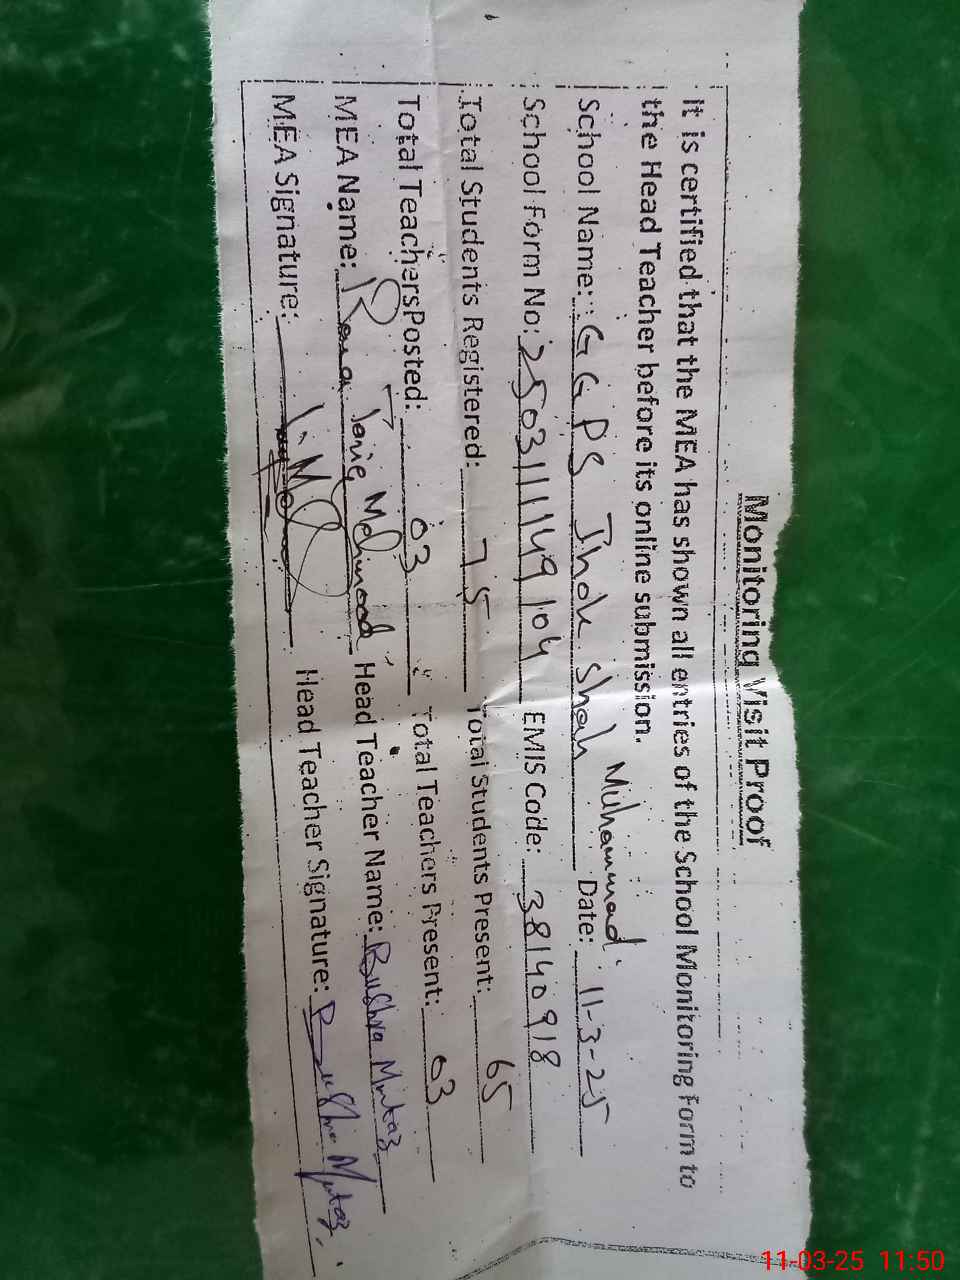 Monitoring Visit Proof
It is certified that the MEA has shown all entries of the School Monitoring Form to
the Head Teacher before its online submission.
Muhammad
School Name: GGPS Jhok Shah Date: 11-3-25
School Form No: 25031114 9104 EMIS Code: 38140918
Total Students Registered: 75 Total Students Present: 65
Total Teachers Posted: 03 Total Teachers Present: 03
MEA Name: Rana Tariq Mehmood Head Teacher Name: Bushra Mumtaz
MEA Signature: Head Teacher Signature: Bushra Mumtaz
11-03-25 11:50